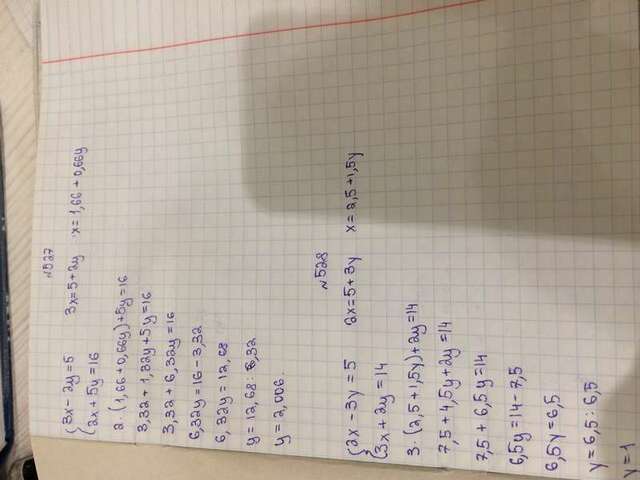 №527
{3x-2y=5 3x=5+2y x=1,66+0,66y
{2x+5y=16
2·(1,66+0,66y)+5y=16
3,32+1,32y+5y=16
3,32+6,32y=16
6,32y=16-3,32
6,32y=12,68
y=12,68:6,32
y=2,006.
№528
{2x-3y=5 2x=5+3y x=2,5+1,5y
{3x+2y=14
3·(2,5+1,5y)+2y=14
7,5+4,5y+2y=14
7,5+6,5y=14
6,5y=14-7,5
6,5y=6,5
y=6,5:6,5
y=1